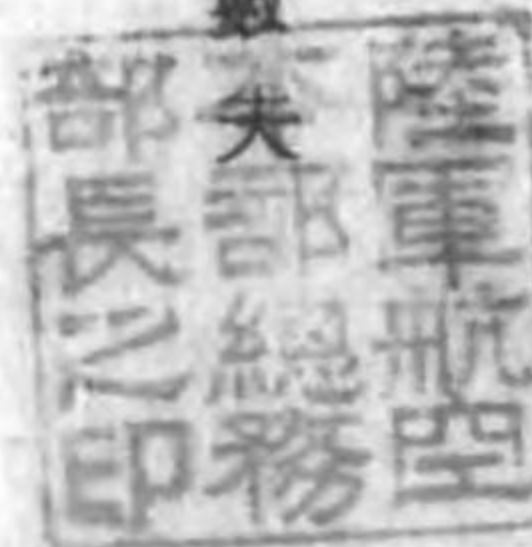 陸軍航空
本部總務
部長之印
夫